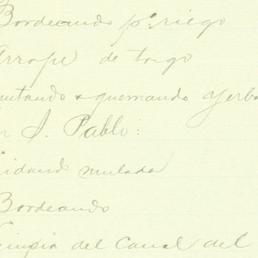 Bordeando pa riego
Arrope de trigo
untando & quemando yerba
S. Pablo:
uidand mulada
Bordeando
Limpia del Canal del